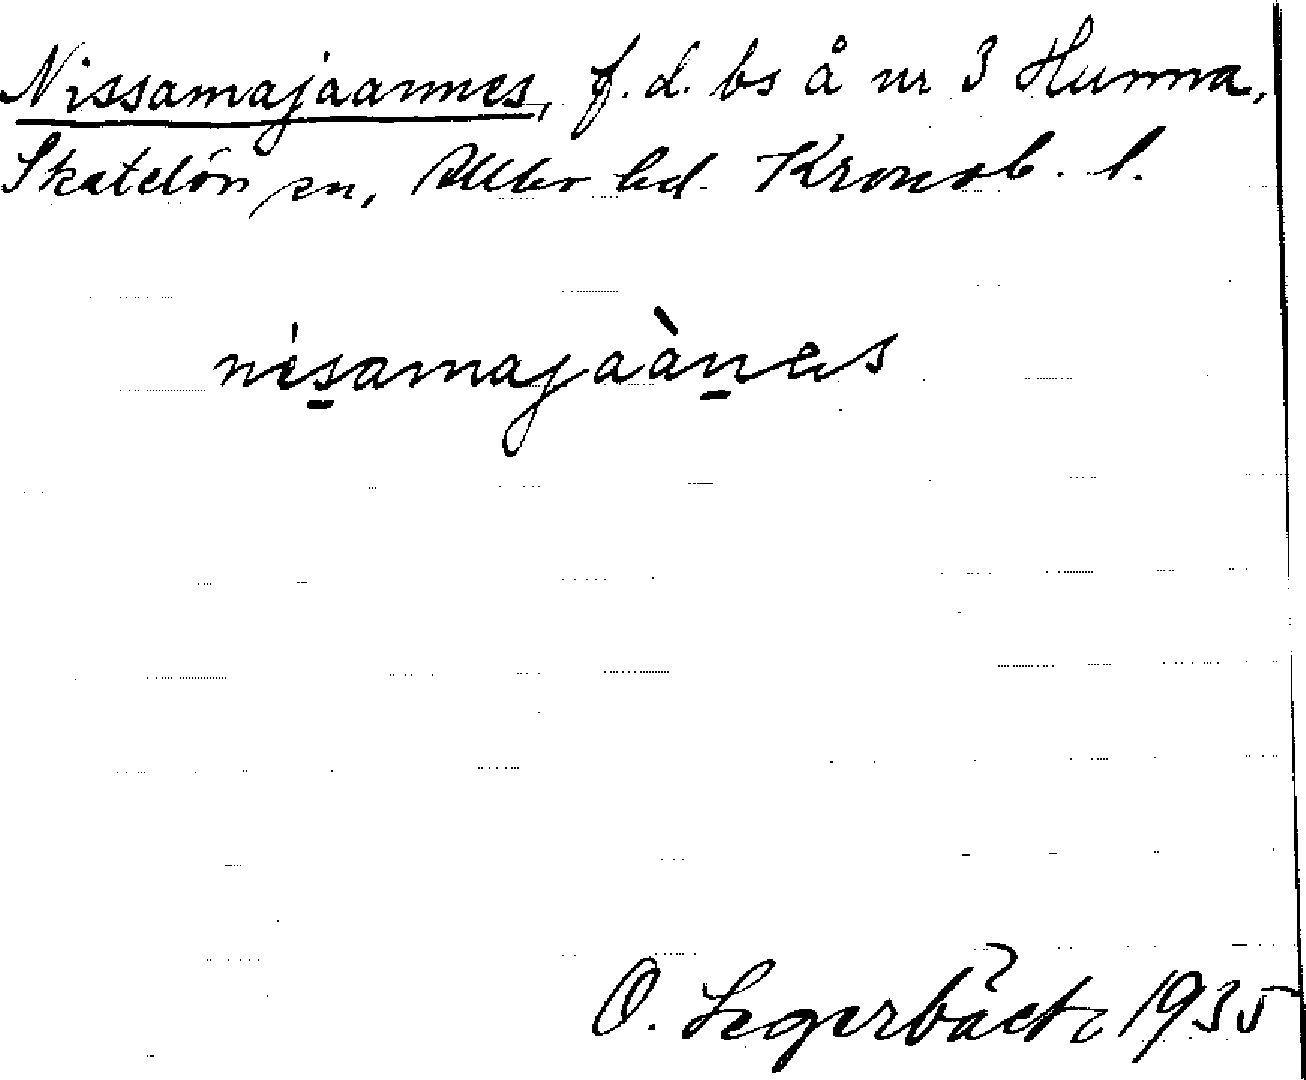 Nissamajaannes, f.d. bs å nr 3 Hunna,
Skatelöv sn, Allbo hd. Kronob. l.
nisamajaànəs
O. Segerbäck 1935